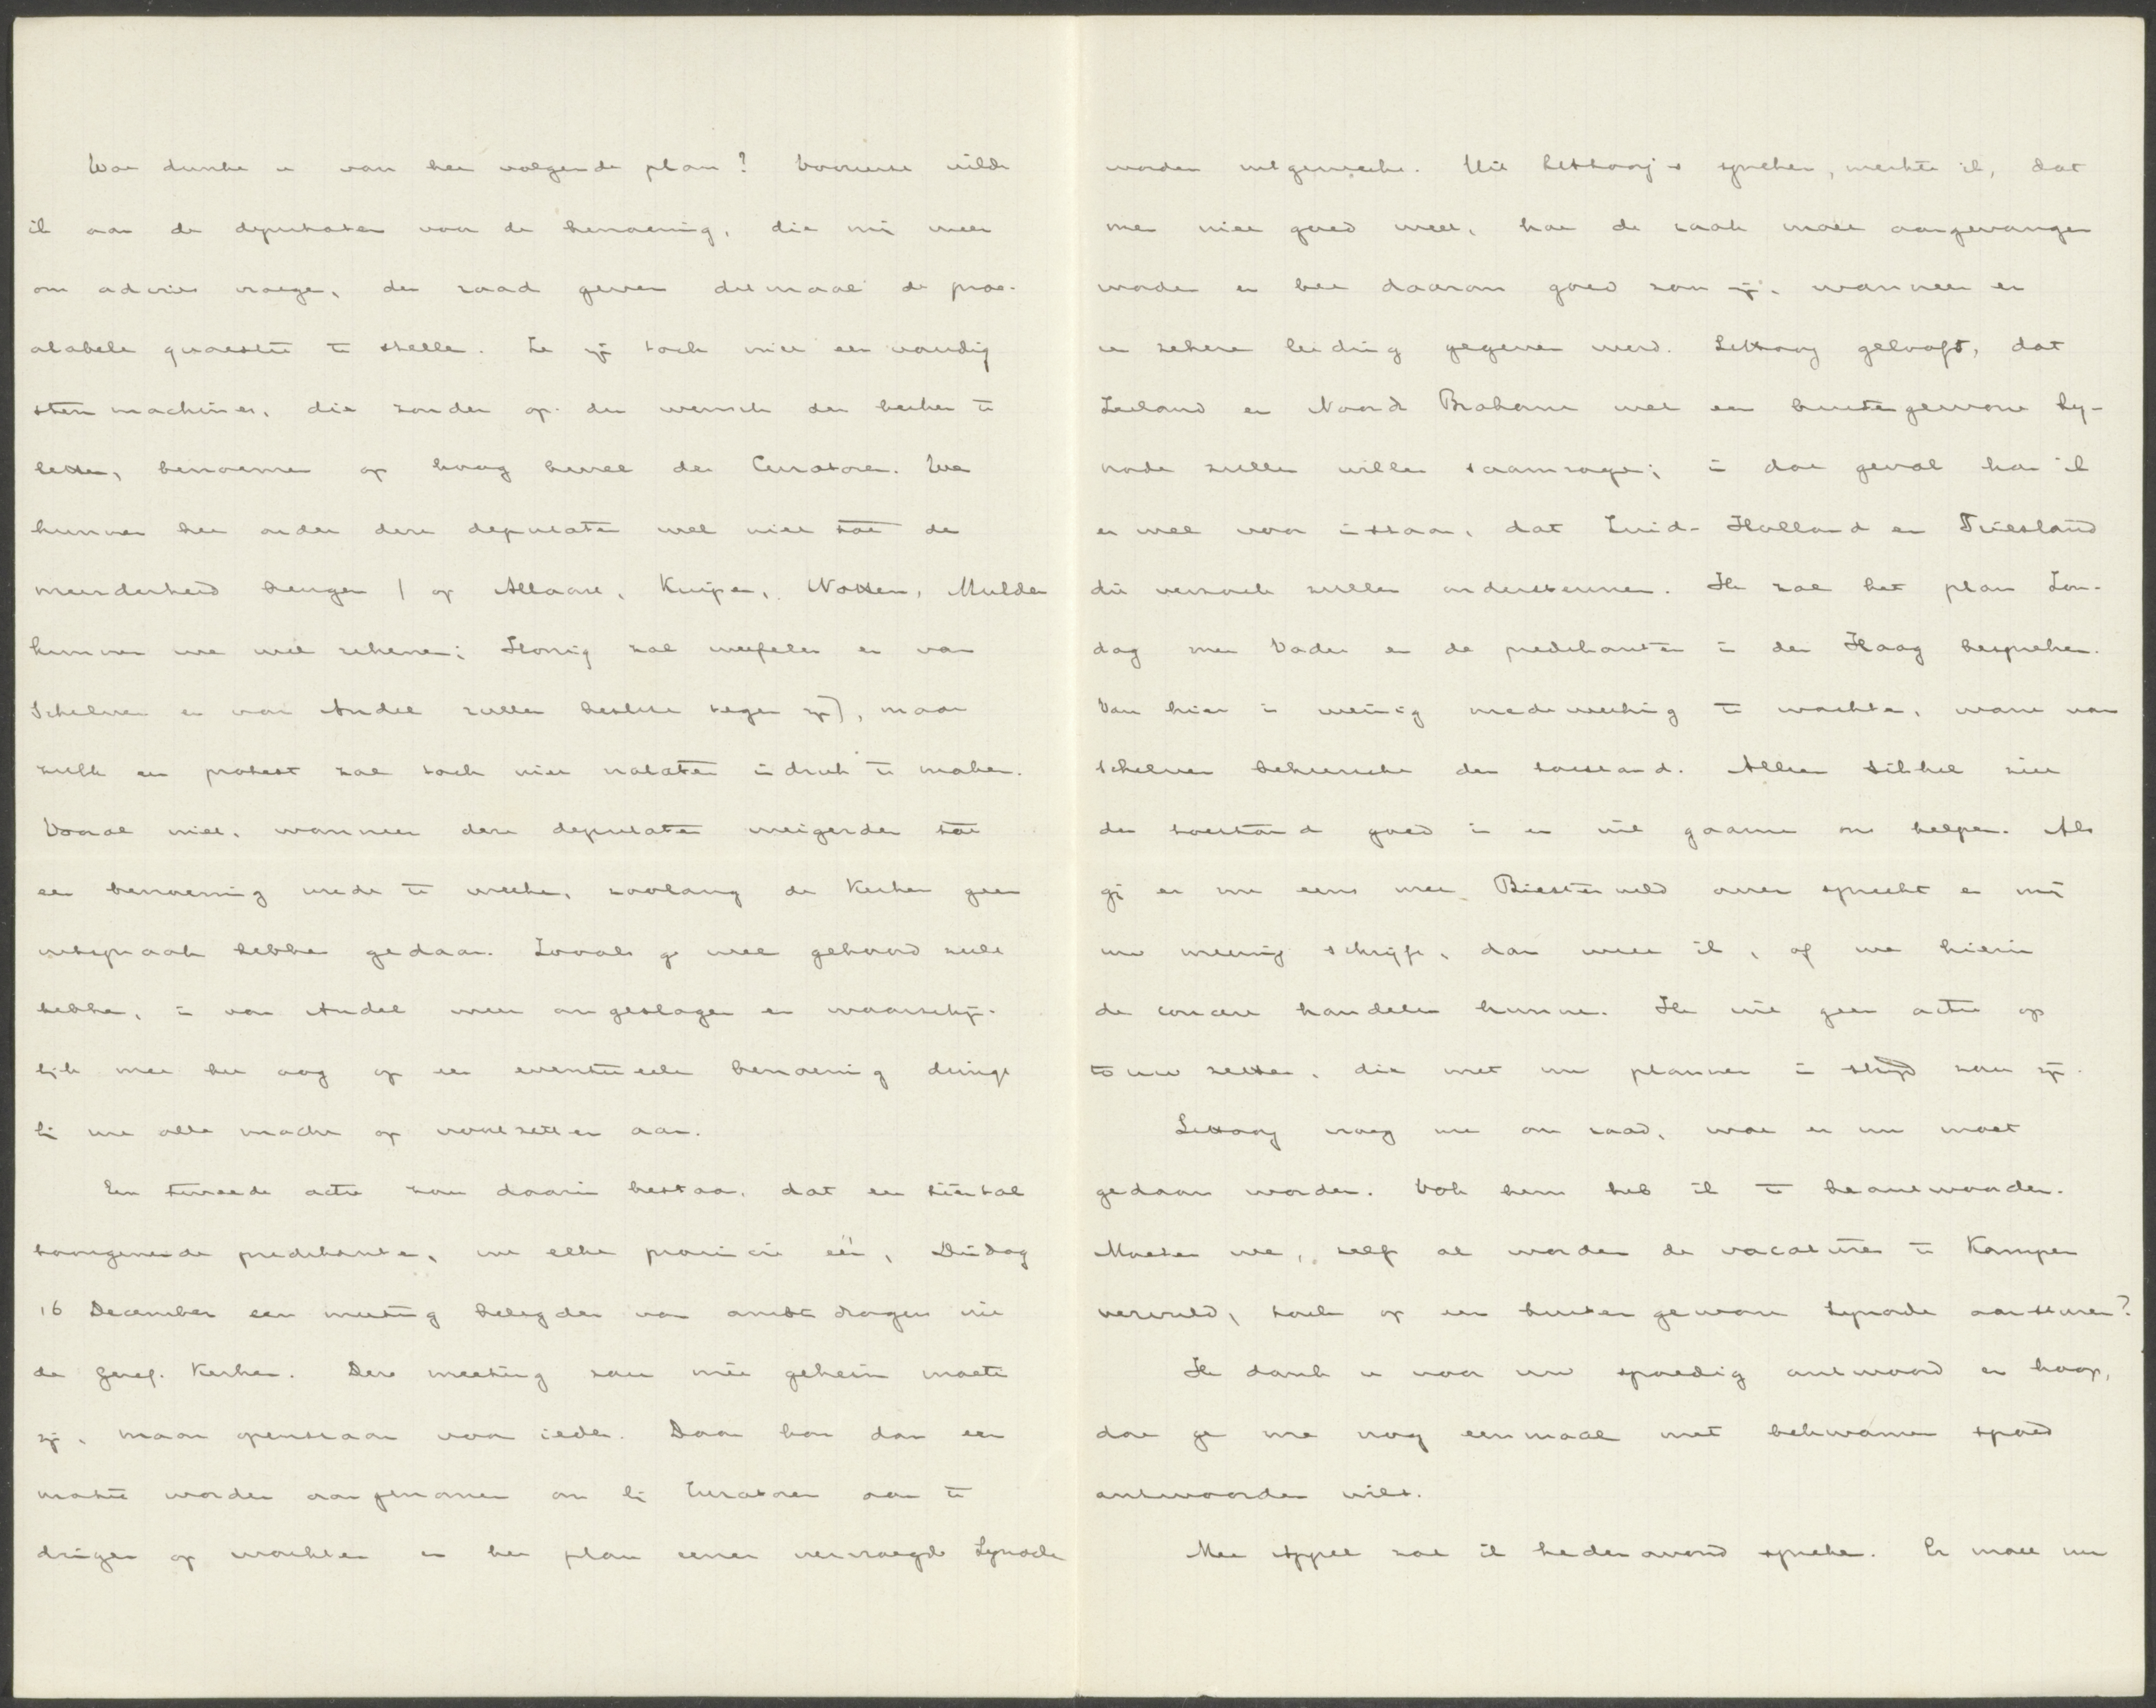 Wat dunkt u van het volgende plan? Vooreerst wilde
ik aan de deputaten voor de benoeming, die mij weer
om advies vroegen, den raad geven ditmaal de prae-
alabele quaestie te stellen. Ze zijn toch niet eenvoudig
stem machines, die zonder op den wensch der kerken te
letten, benoemen op hoog bevel der Curatoren. We
kunnen het onder deze deputaten wel niet tot de
meerderheid brengen (op Allaart, Kuiper, Notten, Mulder
kunnen we wel rekenen; Honig zal weifelen en van
Schelven en van Andel zullen beslist tegen zijn), maar
zulk een protest zal toch niet nalaten indruk te maken.
Vooral niet, wanneer deze deputaten weigerden tot
een benoeming mede te werken, zoolang de Kerken geen
uitspraak hebben gedaan. Zooals ge wel gehoord zult
hebben, is van Andel weer omgeslagen en waarschijn-
lijk met het oog op een eventueele benoeming dringt
hij met alle macht op voortzetten aan.
Een tweede actie zou daarin bestaan, dat een tiental
toongevende predikanten, uit elke provincie één, Dinsdag
16 December een meeting belegden van ambtdragers uit
de Geref. Kerken. Deze meeting zou niet geheim moeten
zijn, maar openstaan voor ieder. Daar kon dan een
motie worden aangenomen om bij Curatoren aan te
dringen op wachten en het plan eener vervroegde Synode
worden uitgewerkt. Uit Littooij's spreken, merkte ik, dat
men niet goed weet, hoe de zaak moet aangevangen
worden en het daarom goed zou zijn, wanneer er
een zekere leiding gegeven werd. Littooij gelooft, dat
Zeeland en Noord Brabant wel een buitengewone Sy-
node zullen willen saamroepen; in dat geval kan ik
er wel voor instaan, dat Zuid-Holland en Friesland
dit verzoek zullen ondersteunen. Ik zal het plan Zon-
dag met Vader en de predikanten in den Haag bespreken.
Van hier is weinig medewerking te wachten, want van
Schelven beheerscht den toestand. Alleen Sikkel ziet
den toestand goed in en wil gaarne ons helpen. Als
gij er nu eens met Biesterveld over spreekt en mij
uw meening schrijft, dan weet ik, of we hierin
de concert handelen kunnen. Ik wil geen actie op
touw zetten, die met uw plannen in strijd zou zijn.
Littooij vroeg me om raad, wat er nu moet
gedaan worden. Ook hem heb ik te beantwoorden.
Moeten we, zelfs al worden de vacatures te Kampen
vervuld, toch op een buitengewone Synode aansturen?
Ik dank u voor uw spoedig antwoord en hoop,
dat ge me nog eenmaal met bekwamen spoed
antwoorden wilt.
Met zal ik heden avond spreken. Er moet nu